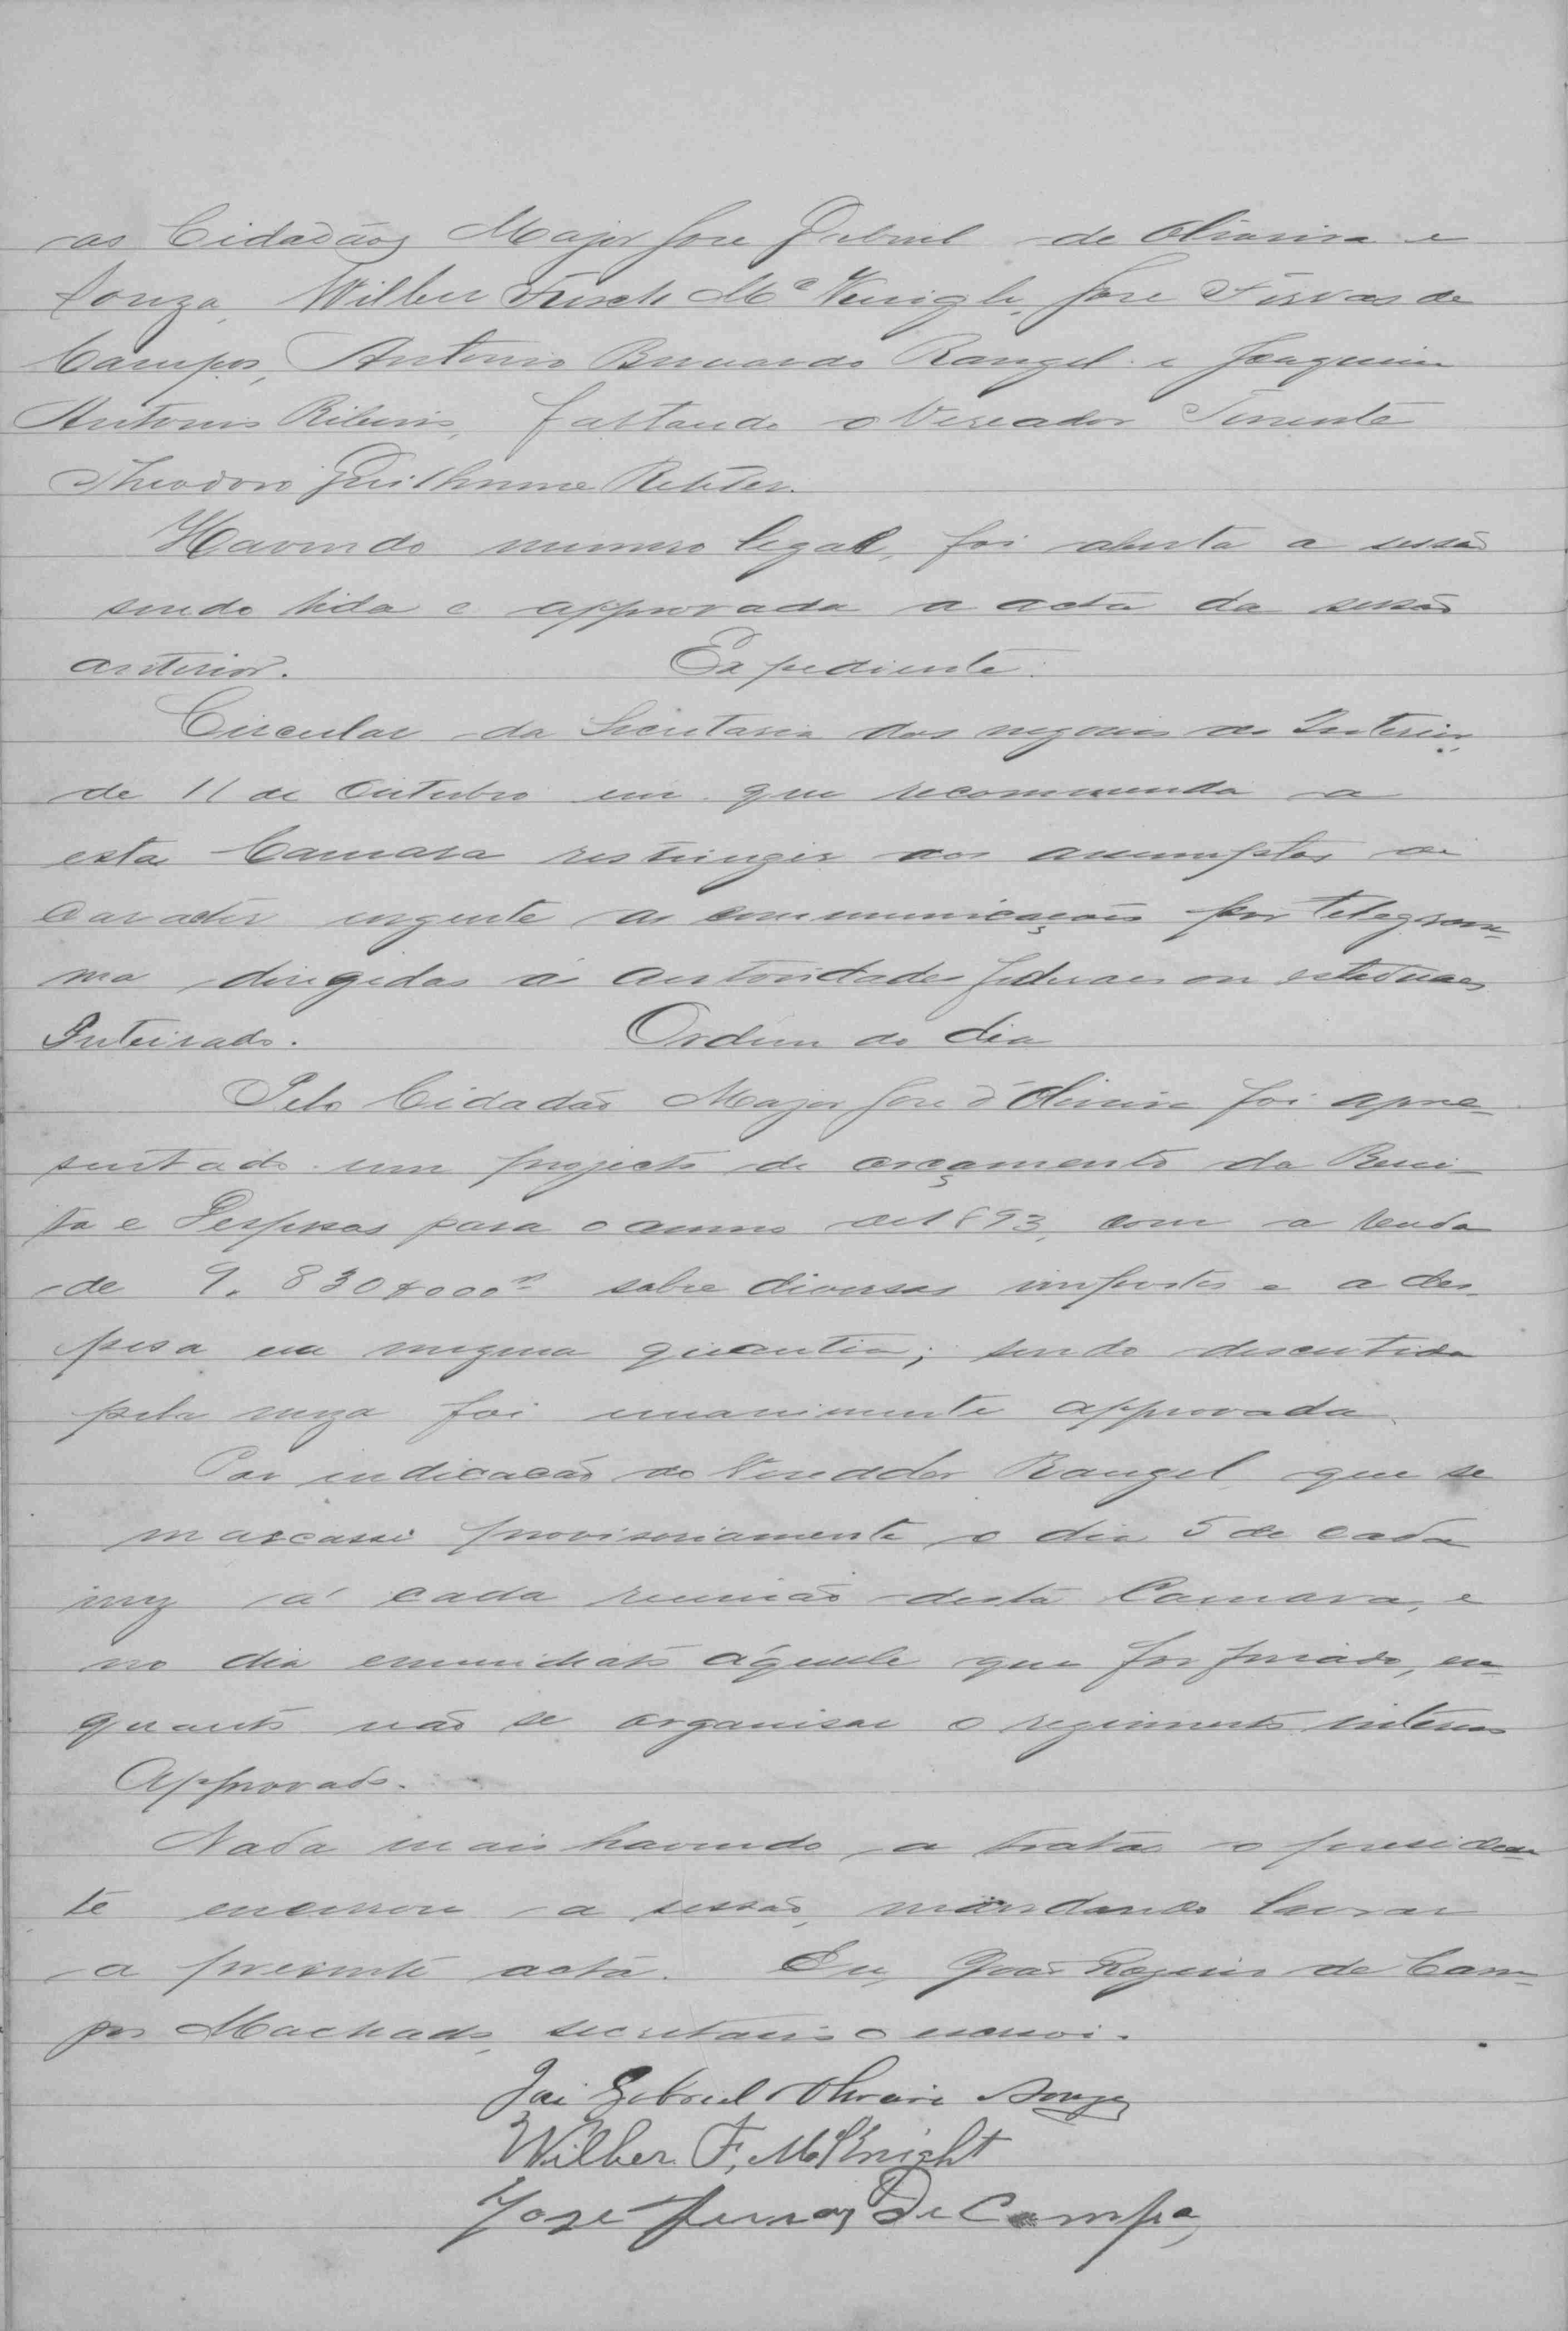 os Cidadãos Major Jose Gabriel de Oliveira e
Souza, Wilber Fisch Mc Knight, Jose Fervas de
Campos, Antonio Bernardo Rangel e Joaquim
Antonio Ribeiro, faltando o Vereador Tenente
Theodoro Guilherme Rehder.
Havendo numero legal, foi aberta a sessão
sendo lida e approvada a acta da sessão
anterior. Expediente.
Circular da Secretaria dos negocios do Interior,
de 11 de Outubro em que recommenda a
esta Camara restringir aos assumptos de
caracter urgente as communicações por telegram-
ma dirigidas á autoridades federaes ou estaduaes
Inteirado. Ordem do dia
Pelo Cidadão Major Jose d'Oliveira foi apre-
sentado um projecto de orçamento da Recei-
ta e Despesas para o anno de 1893, com a renda
de 9.830$000rs sobre diversos impostos e a des-
pesa em mesma quantia; sendo discutida
pela meza foi unanimente approvada.
Por indicacão do Vereador Rangel que se
marcasse provisoriamente o dia 5 de cada
mez á cada reunião desta Camara, e
no dia emmidiato áquelle que for friado, en-
quanto não se organisar o regimento interno
Approvado.
Nada mais havendo a tratar o presiden-
te encerrou a sessão, mandando lavrar
a presente acta. Eu, João Rogerio de Cam-
pos Machado, secretario o escrevi.
José Gabriel Oliveira Souza
Wilber F. McKnight
Jose Fervas De Campos